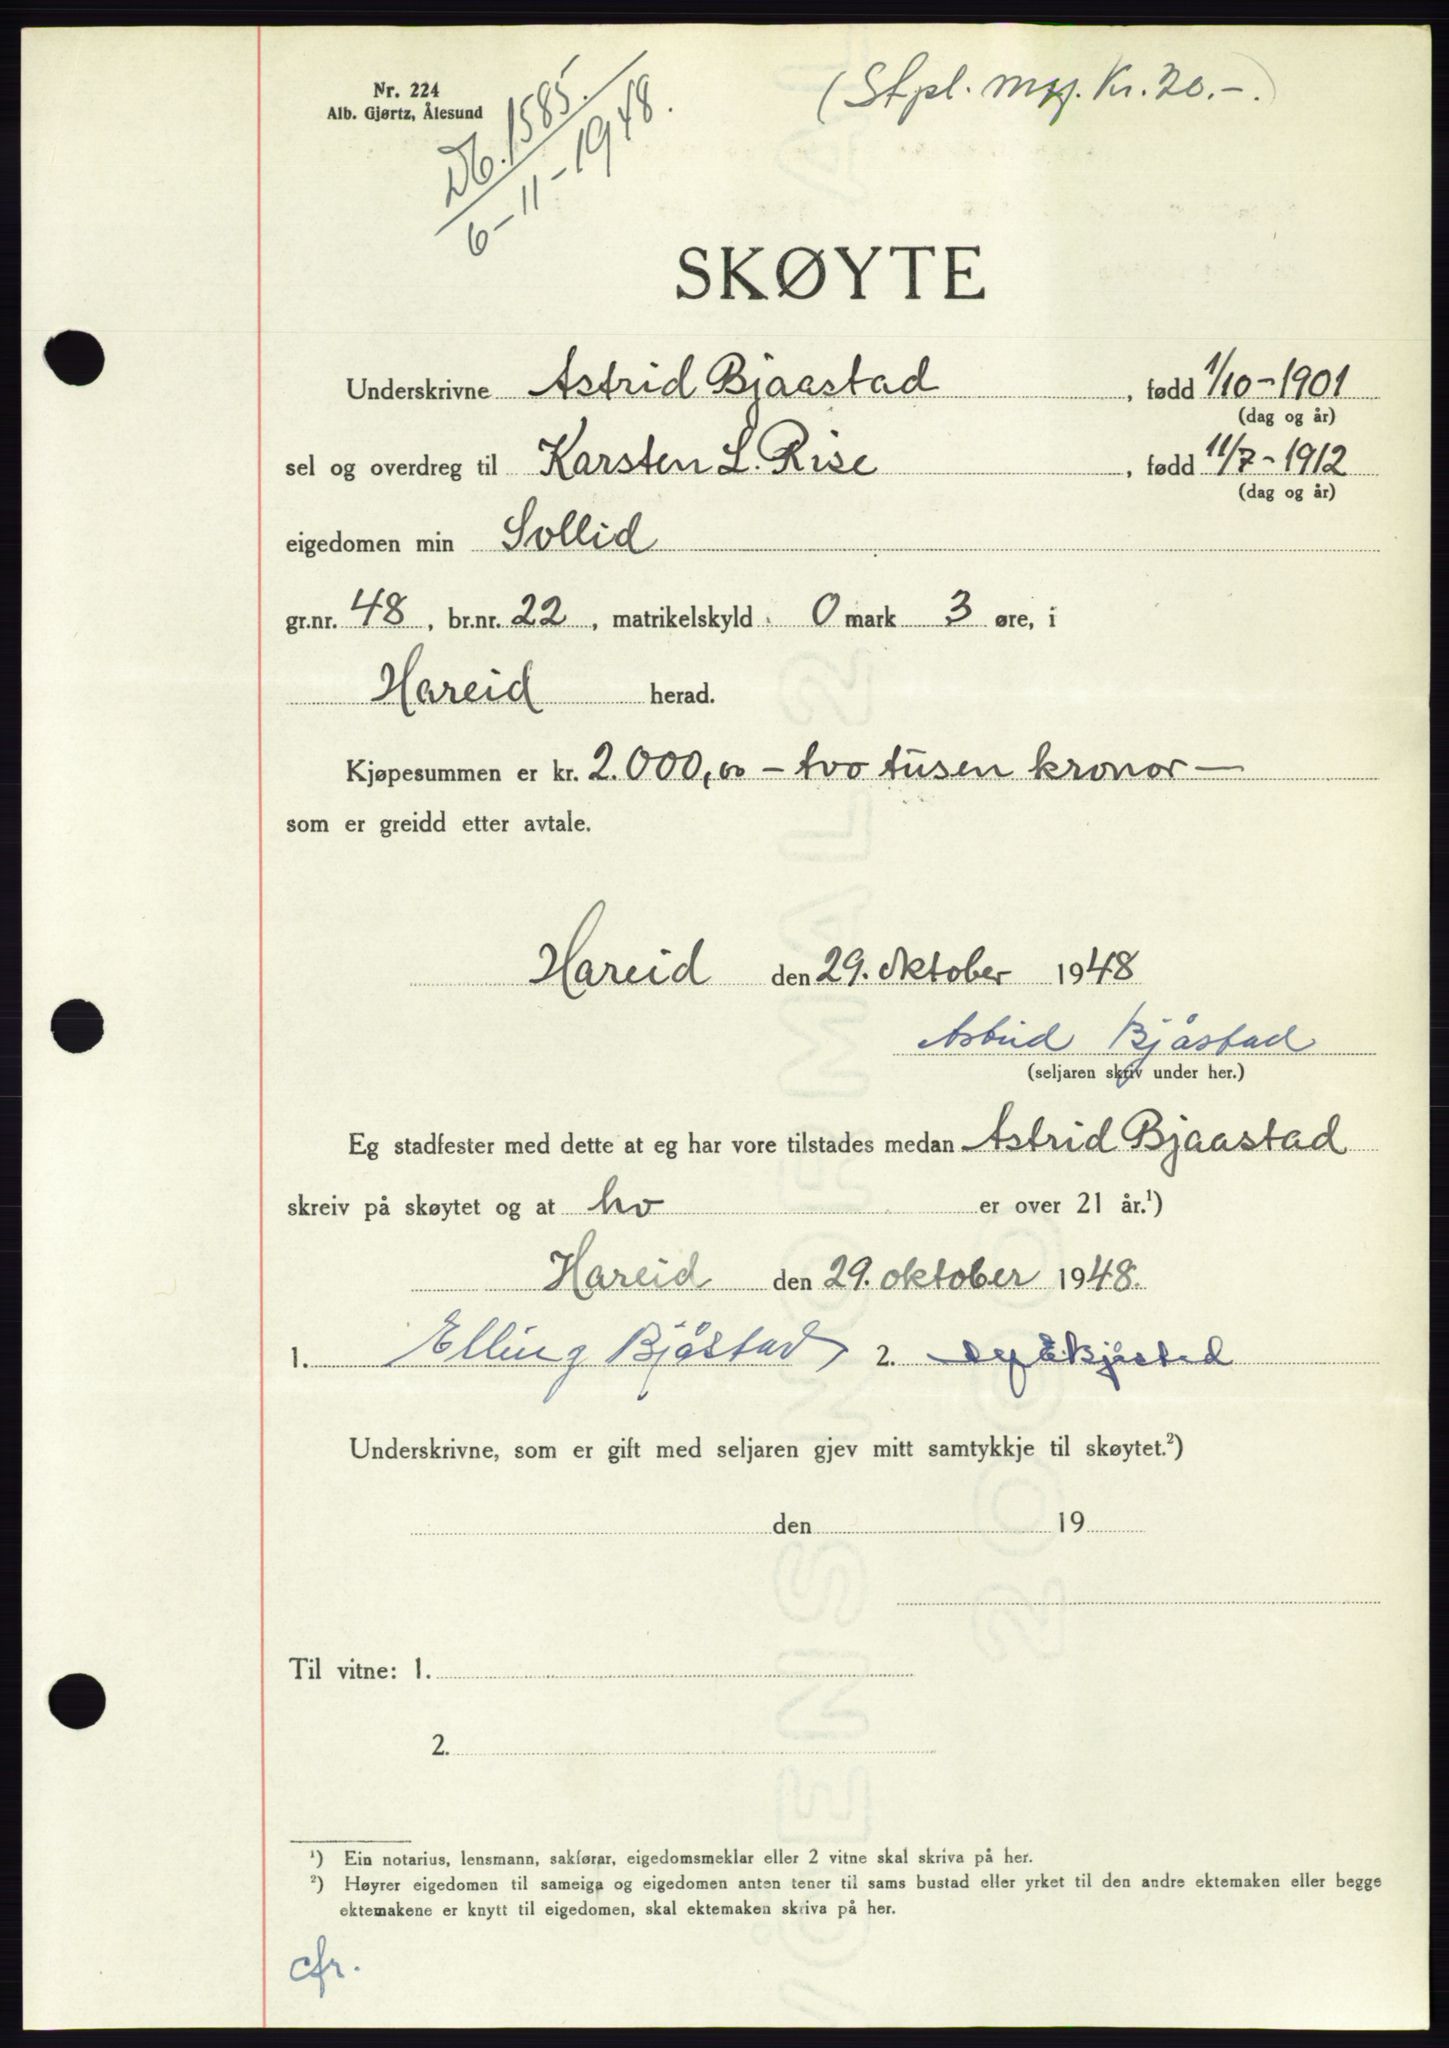 Nr. 224
Alb. Gjørtz, Ålesund
Db. 1585.
6-11-1948.
(Stpl. m. Kr. 20.-.)
SKØYTE
Underskrivne Astrid Bjaastad, fødd 1/10-1901
(dag og år)
sel og overdreg til Karsten L. Rise, fødd 11/7-1912
(dag og år)
eigedomen min Sollid
gr.nr. 48, br.nr. 22, matrikelskyld 0 mark 3 øre, i
Hareid herad.
Kjøpesummen er kr. 2.000,00 – tvo tusen kronor –
som er greidd etter avtale.
Hareid den 29. oktober 1948
Astrid Bjåstad
(seljaren skriv under her.)
Eg stadfester med dette at eg har vore tilstades medan Astrid Bjaastad
skreiv på skøytet og at ho er over 21 år.¹)
Hareid den 29. oktober 1948.
1. Elling Bjåstad 2. Bjåstad
Underskrivne, som er gift med seljaren gjev mitt samtykkje til skøytet.²)
den 19
Til vitne: 1.
2.
¹) Ein notarius, lensmann, sakførar, eigedomsmeklar eller 2 vitne skal skriva på her.
²) Høyrer eigedomen til sameiga og eigedomen anten tener til sams bustad eller yrket til den andre ektemaken eller begge
ektemakene er knytt til eigedomen, skal ektemaken skriva på her.
cfr.